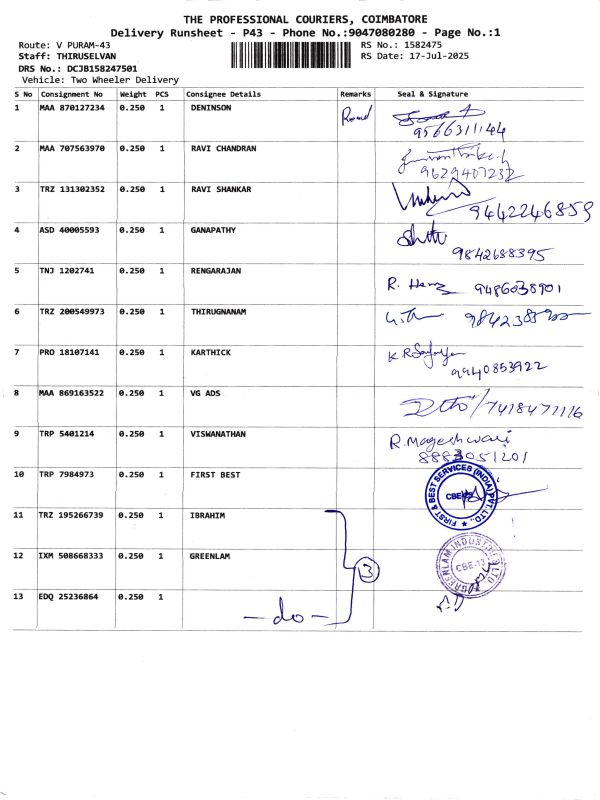 THE PROFESSIONAL COURIERS, COIMBATORE
Delivery Runsheet - P43 - Phone No.:9047080280 - Page No.:1
Route: V PURAM-43 RS No.: 1582475
Staff: THIRUSELVAN RS Date: 17-Jul-2025
DRS No.: DCJB158247501
Vehicle: Two Wheeler Delivery
S No Consignment No Weight PCS Consignee Details Remarks Seal & Signature
1 MAA 870127234 0.250 1 DENINSON
9566311144
2 MAA 707563970 0.250 1 RAVI CHANDRAN
9629407232
3 TRZ 131302352 0.250 1 RAVI SHANKAR
9442246859
4 ASD 40005593 0.250 1 GANAPATHY
9842688395
5 TNJ 1202741 0.250 1 RENGARAJAN
9486038901
6 TRZ 200549973 0.250 1 THIRUGNANAM
7 PRO 18107141 0.250 1 KARTHICK
9940853922
8 MAA 869163522 0.250 1 VG ADS
7418471116
9 TRP 5401214 0.250 1 VISWANATHAN R. Mageshwari
8883051201
10 TRP 7984973 0.250 1 FIRST BEST
FIRST & BEST SERVICES (INDIA) PVT. LTD.
CBE
11 TRZ 195266739 0.250 1 IBRAHIM
12 IXM 508668333 0.250 1 GREENLAM
3
GREENLAM INDUSTRIES LTD
CBE-13
13 EDQ 25236864 0.250 1
-do-